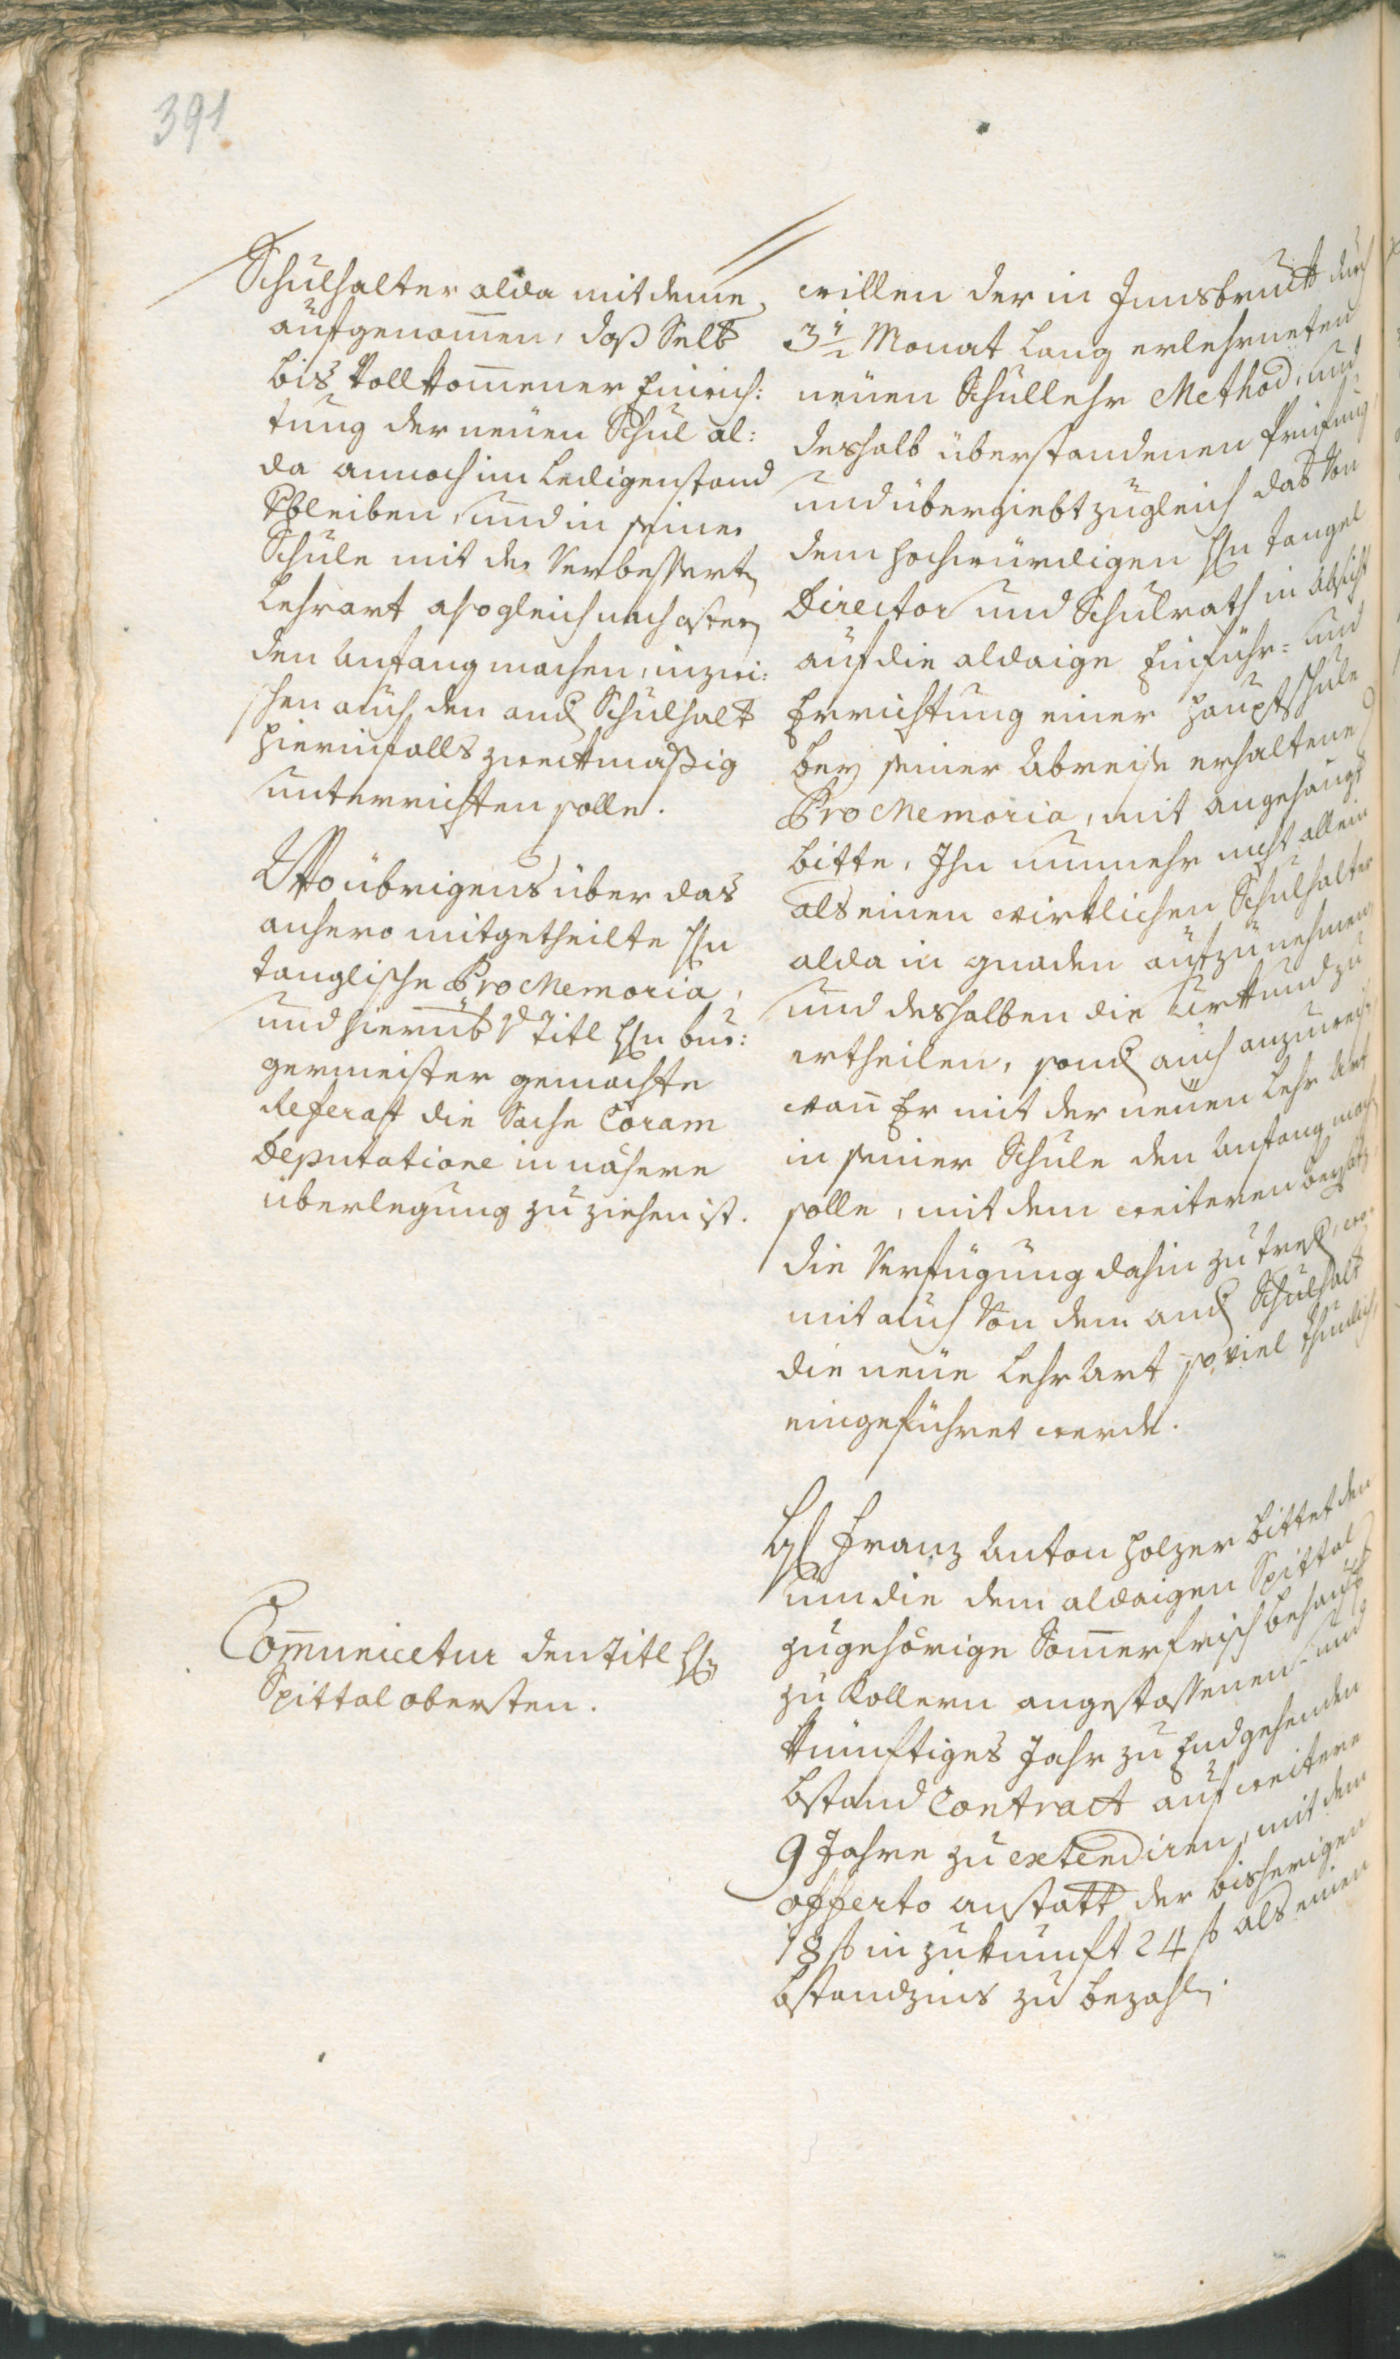 391
Schulhalter alda mit deme
aufgenom̄en, daß Selb
bis Vollkom̄ener Einrich:
tung der neuen Schul al:
da annoch im Ledigenstand
Verbleiben, und in seiner
Schule mit der Verbesserten
Lehrart also gleich nach ostern
den Anfang machen, inzwi:
schen auch den and Schulhalt
hierinfalls zweckmäßig
unterrichten solle.
Wo übrigens über das
anhero mitgetheilte Hn
Tanglische Pro Memoria,
und hierüb Titl Hn bur:
germeister gemachte
Referat die Sache Coram
Deputatione in nähere
überlegung zu ziehen ist.
Com̄unicetur den Titl Hn
Spittal obersten.
willen der in Innsbruck durch
3 1/2 Monat lang erlehrneten
neuen Schullehr Method, und
deshalb überstandenen Prüfung
und übergiebt zugleich das Von
dem hochwürdigen Hn Tangel
Director und Schulrath in Absicht
auf die aldaige Einführ- und
Errichtung einer Hauptschule
bey seiner Abreise erhaltene
Pro Memoria, mit angehängt
bitte, Ihn nunmehr nicht allein
als einen wirklichen Schulhalter
alda in gnaden aufzunehmen,
und deshalben die Urkund zu
ertheilen, sond auch anzuweis
wan̄ Er mit der neuen Lehr Art
in seiner Schule den Anfang mach
solle, mit dem weiteren beysatz
die Verfügung dahin zu tref, wo
mit auch Von dem and Schulhalt
die neue Lehr Art so viel thunlich,
eingeführet werde.
H Franz Anton Holzer bittet den
um die dem aldaigen Spittal
zugehörige Som̄erfrisch behausg
zu Kollern angestossenen- und
künftiges Jahr zu End gehenden
bstand Contract auf weitere
9 Jahre zu extendiren, mit dem
offerto anstatt der bisherigen
18 f in zukunft 24 f als einen
bstandzins zu bezahln.